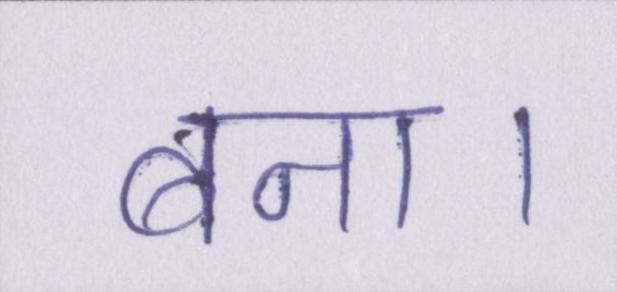 बना।